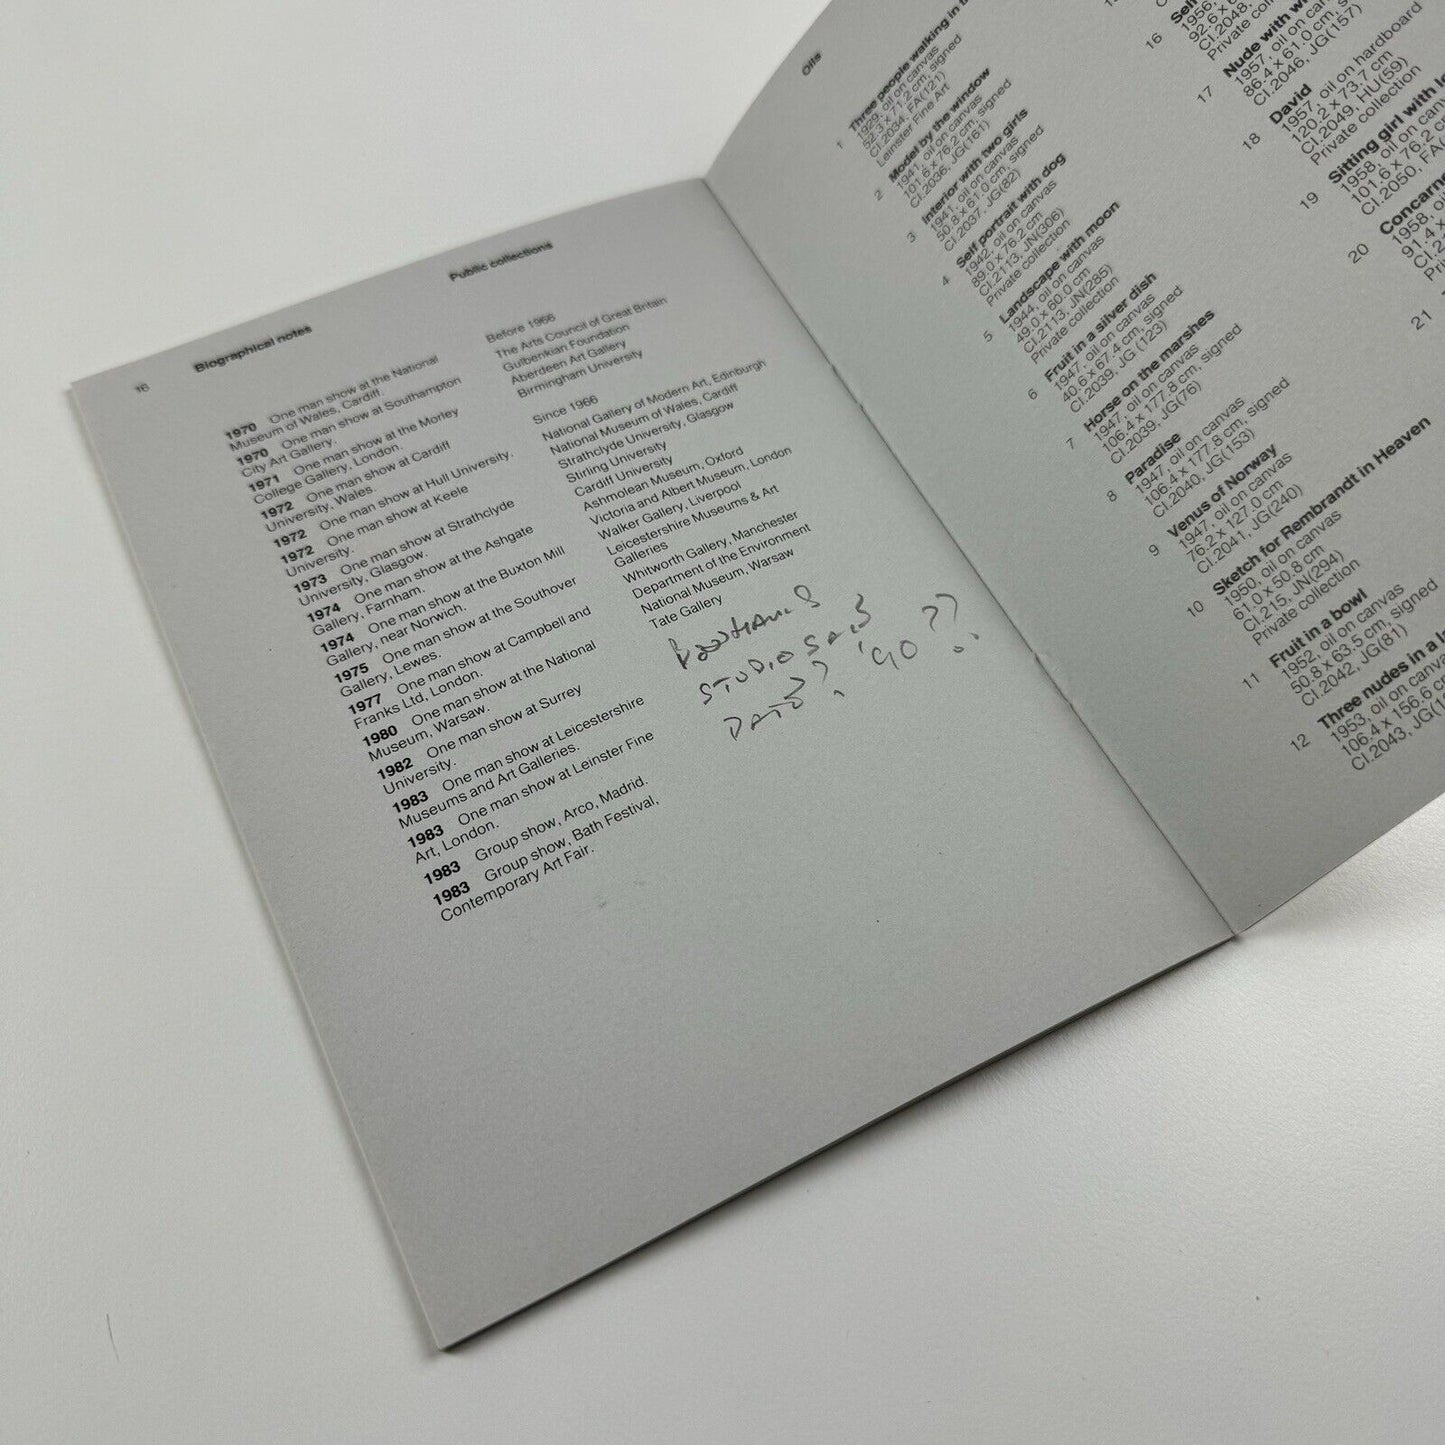 16
Biographical notes
1970 One man show at the National
Museum of Wales, Cardiff.
1970 One man show at Southampton
City Art Gallery.
1971 One man show at the Morley
College Gallery, London.
1972 One man show at Cardiff
University, Wales.
1972 One man show at Hull University.
1972 One man show at Keele
University.
1973 One man show at Strathclyde
University, Glasgow.
1974 One man show at the Ashgate
Gallery, Farnham.
1974 One man show at the Buxton Mill
Gallery, near Norwich.
1975 One man show at the Southover
Gallery, Lewes.
1977 One man show at Campbell and
Franks Ltd, London.
1980 One man show at the National
Museum, Warsaw.
1982 One man show at Surrey
University.
1983 One man show at Leicestershire
Museums and Art Galleries.
1983 One man show at Leinster Fine
Art, London.
1983 Group show, Arco, Madrid.
1983 Group show, Bath Festival,
Contemporary Art Fair.
Public collections
Before 1966
The Arts Council of Great Britain
Gulbenkian Foundation
Aberdeen Art Gallery
Birmingham University
Since 1966
National Gallery of Modern Art, Edinburgh
National Museum of Wales, Cardiff
Strathclyde University, Glasgow
Stirling University
Cardiff University
Ashmolean Museum, Oxford
Victoria and Albert Museum, London
Walker Gallery, Liverpool
Leicestershire Museums & Art
Galleries
Whitworth Gallery, Manchester
Department of the Environment
National Museum, Warsaw
Tate Gallery
STUDIO SALE
DATE? '90??
Oils
1 Three people walking in
1929, oil on canvas
52.3 x 71.2 cm, signed
CI.2034, FA(121)
Leinster Fine Art
2 Model by the window
1941, oil on canvas
101.6 x 76.2 cm, signed
CI.2036, JG(161)
3 Interior with two girls
1941, oil on canvas
50.8 x 61.0 cm, signed
CI.2037, JG(82)
4 Self portrait with dog
1942, oil on canvas
89.0 x 76.2 cm
CI.2113, JN(306)
Private collection
5 Landscape with moon
1944, oil on canvas
49.0 x 60.0 cm
CI.2113, JN(285)
Private collection
6 Fruit in a silver dish
1947, oil on canvas
40.6 x 67.4 cm, signed
CI.2039, JG (123)
7 Horse on the marshes
1947, oil on canvas
106.4 x 177.8 cm, signed
CI.2039, JG(76)
8 Paradise
1947, oil on canvas
106.4 x 177.8 cm, signed
CI.2040, JG(153)
9 Venus of Norway
1947, oil on canvas
76.2 x 127.0 cm
CI.2041, JG(240)
10 Sketch for Rembrandt in Heaven
1950, oil on canvas
61.0 x 50.8 cm
CI.215, JN(294)
Private collection
11 Fruit in a bowl
1952, oil on canvas
50.8 x 63.5 cm, signed
CI.2042, JG(81)
12 Three nudes in a
1953, oil on canvas
106.4 x 156.6 cm
CI.2043,
16 Self
1956,
92.6 x
CI.2048,
Private
17 Nude with
1957, oil on canvas
86.4 x 61.0 cm, signed
CI.2046, JG(157)
18 David
1957, oil on hardboard
120.2 x 73.7 cm
CI.2049, HU(59)
Private collection
19 Sitting girl with
1958, oil on
101.6 x 76.2
CI.2050,
20
1958, oil
91.4 x
21